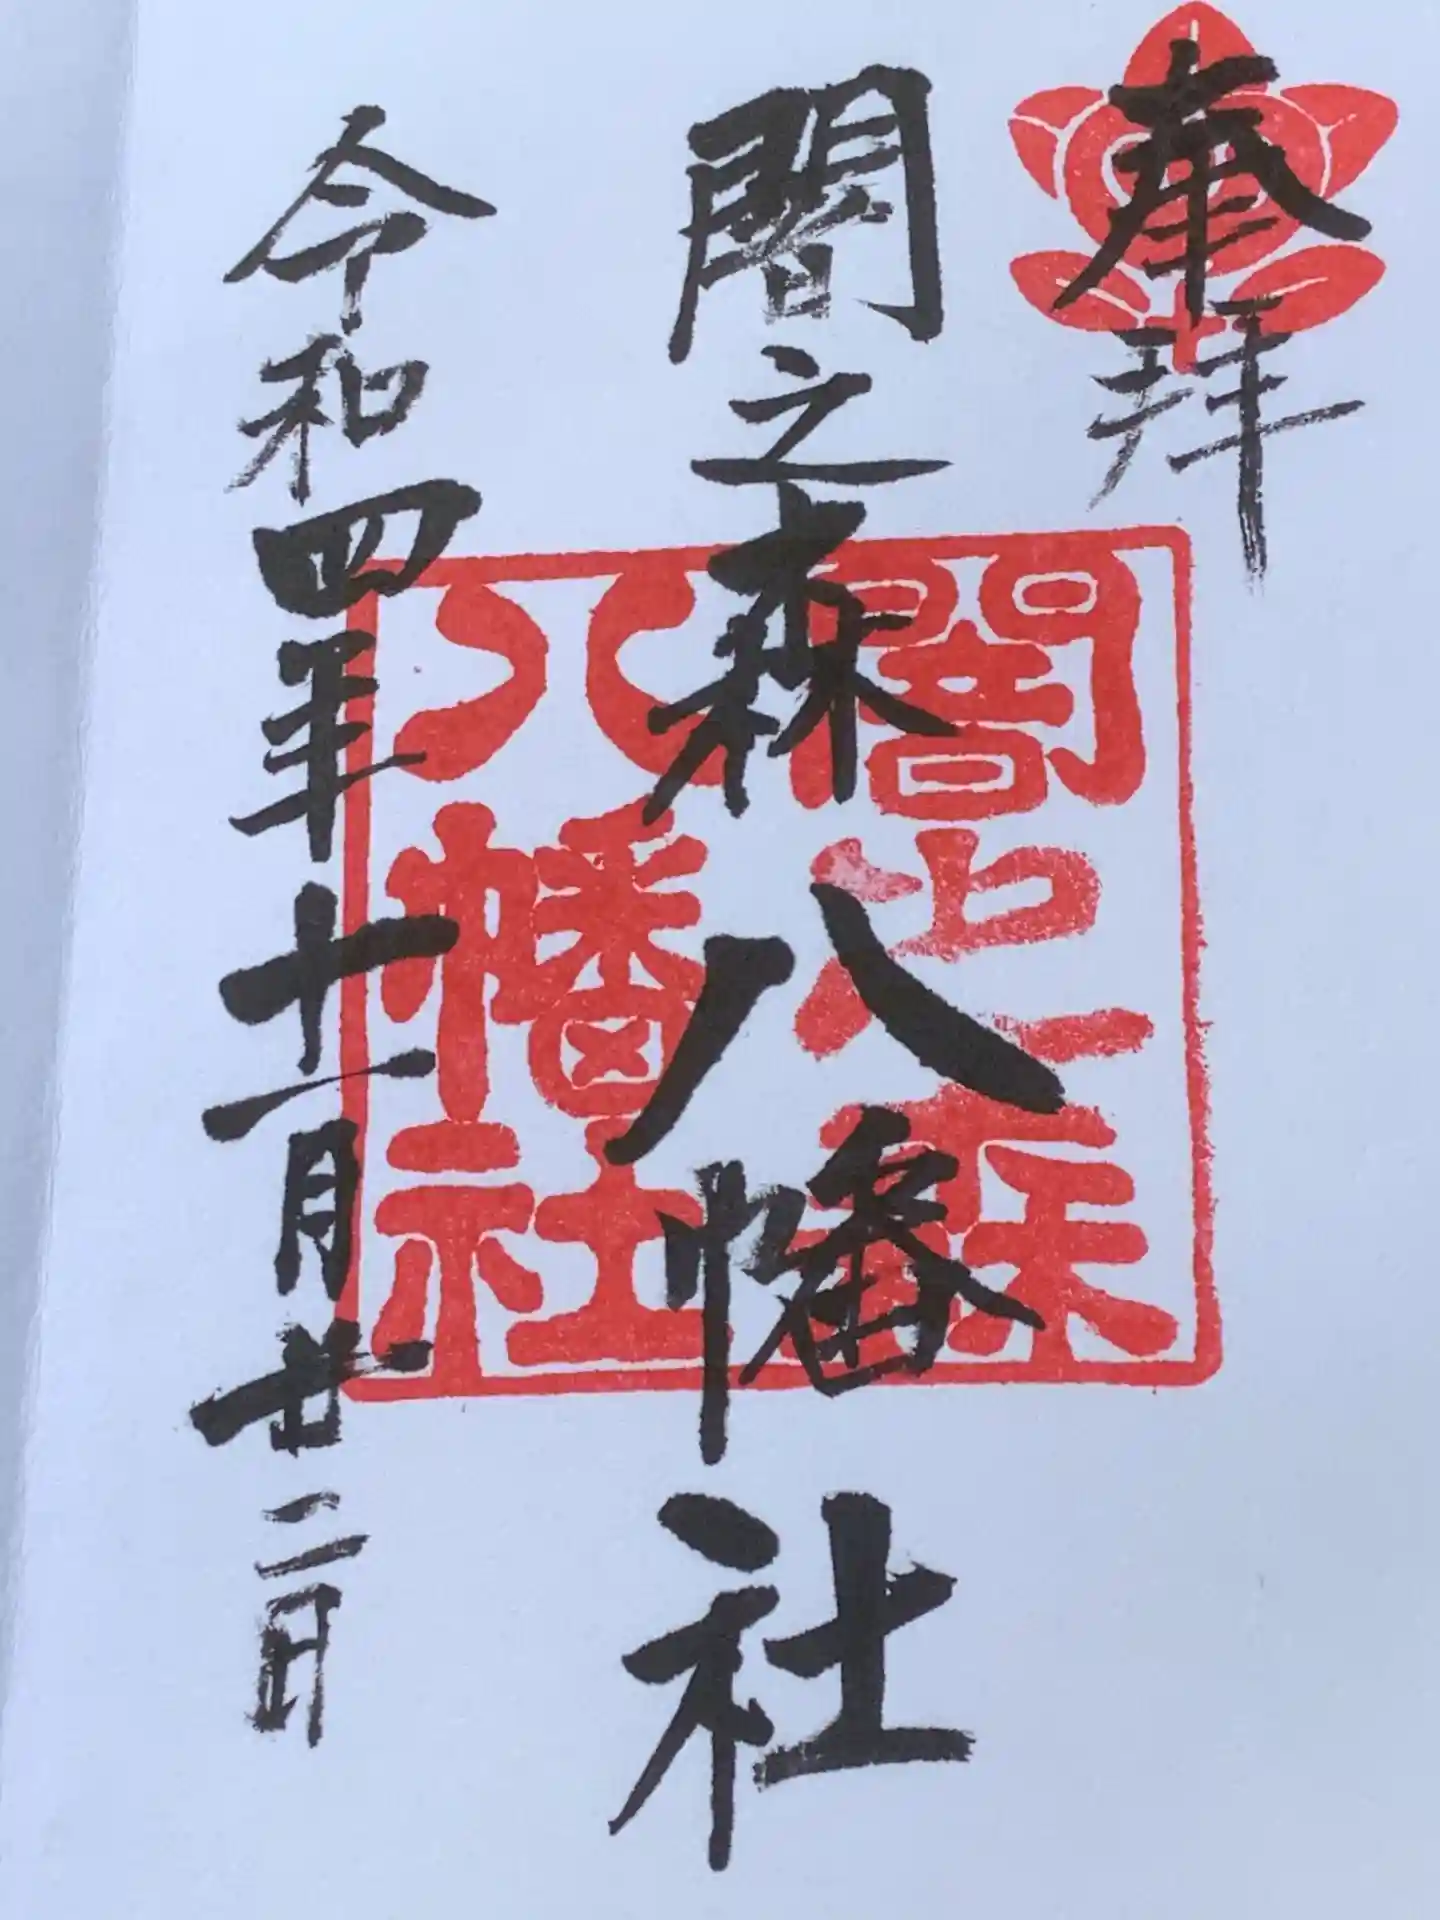 奉拝
闇之森八幡社
闇之森
八幡社
令和四年十一月廿二日